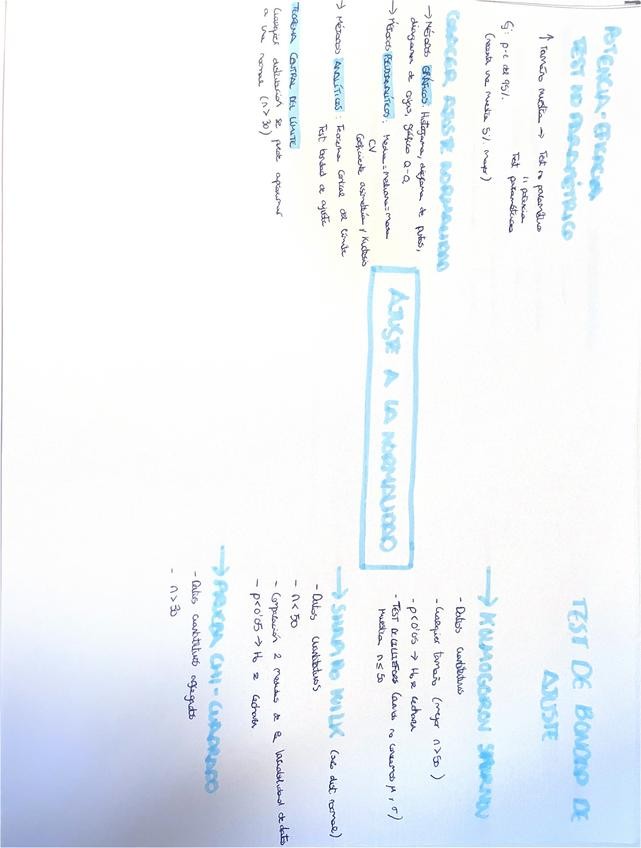 POTENCIA-EFICACIA
TEST NO PARAMÉTRICO
↑ Tamaño muestra → Test no paramétrico
11 potencia
Test paramétricos
Ej: p-e del 95%.
(necesita una muestra 5% mayor)
CONOCER AJUSTE NORMALIDAD
→ Métodos GRÁFICOS: Histograma, diagrama de puntos,
diagrama de cajas, gráfico Q-Q
→ Métodos PSEUDOANALÍTICOS: Media=mediana=moda
CV
Coeficiente asimetría y Kurtosis
→ Métodos ANALÍTICOS: Teorema Central del Límite
Test bondad de ajuste
TEOREMA CENTRAL DEL LÍMITE
Cualquier distribución se puede aproximar
a una normal (n>30)
AJUSTE A LA NORMALIDAD
TEST DE BONDAD DE
AJUSTE
→ KOLMOGOROV SMIRNOV
- Datos cuantitativos
- Cualquier tamaño (mejor n>50)
- p<0'05 → H₀ se rechaza
- TEST DE LILLIEFORS (cuando no conocemos μ y σ)
muestra n≤50
→ SHAPIRO WILK (solo dist. normal)
- Datos cuantitativos
- n<50
- Comparación 2 medidas de la variabilidad de datos
- p<0'05 → H₀ se rechaza
→ PEARSON CHI-CUADRADO
- Datos cuantitativos agregados
- n>30